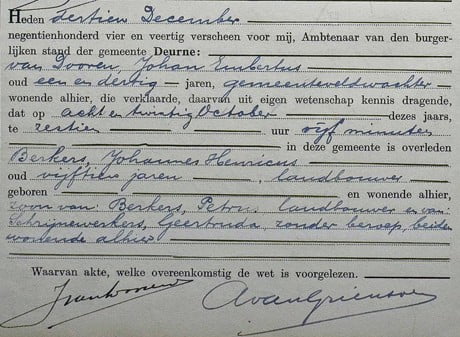 Heden dertien December
negentienhonderd vier en veertig verscheen voor mij, Ambtenaar van den burger-
lijken stand der gemeente Deurne:
van Dooren, Johan Embertus
oud een en dertig jaren, gemeenteveldwachter
wonende alhier, die verklaarde, daarvan uit eigen wetenschap kennis dragende,
dat op acht en twintig October dezes jaars,
te zestien uur vijf minuten
in deze gemeente is overleden
Berkers, Johannes Henricus
oud vijftien jaren, landbouwer
geboren en wonende alhier,
zoon van: Berkers, Petrus, landbouwer en van:
Schrijnewerkers, Geertruda, zonder beroep, beiden
wonende alhier
Waarvan akte, welke overeenkomstig de wet is voorgelezen.